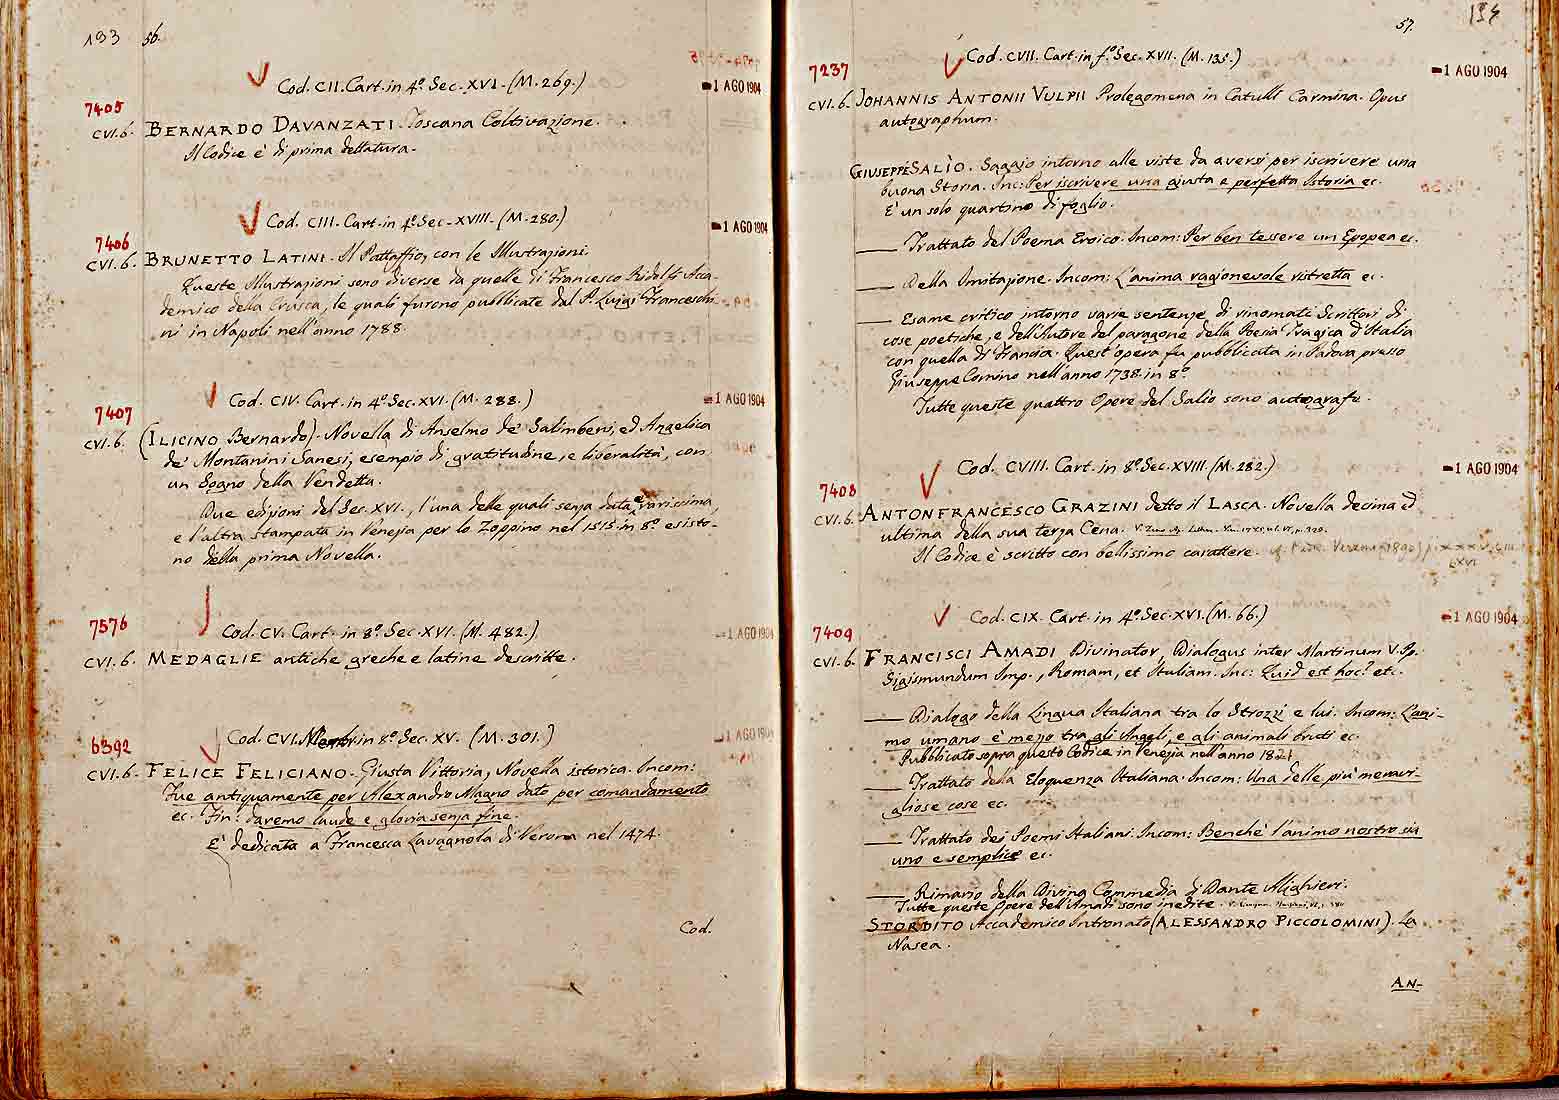 193 56.
Cod. CII. Cart. in 4º. Sec. XVI. (M. 269.)
1 AGO 1904
7405
CVI. 6. BERNARDO DAVANZATI. Toscana Coltivazione.
Il Codice è di prima dettatura.
Cod. CIII. Cart. in 4º. Sec. XVIII. (M. 280.)
1 AGO 1904
7406
CVI. 6. BRUNETTO LATINI. Il Pattaffio, con le Illustrazioni.
Queste Illustrazioni sono diverse da quelle di Francesco Ridolfi Acca-
demico della Crusca, le quali furono pubblicate dal P. Luigi Franceschi-
ni in Napoli nell'anno 1788.
Cod. CIV. Cart. in 4º. Sec. XVI. (M. 288.)
1 AGO 1904
7407
CVI. 6. (ILICINO Bernardo). Novella di Anselmo de' Salimbeni, ed Angelica
de' Montanini Sanesi, esempio di gratitudine, e liberalità, con
un Sogno della Vendetta.
Due edizioni del Sec. XVI., l'una delle quali senza data è rarissima,
e l'altra stampata in Venezia per lo Zoppino nel 1515. in 8º. esisto-
no della prima Novella.
7576
Cod. CV. Cart. in 8º. Sec. XVI. (M. 482.)
1 AGO 1904
CVI. 6. MEDAGLIE antiche greche e latine descritte.
6392
Cod. CVI. Memb. in 8º. Sec. XV. (M. 301.)
1 AGO 1904
CVI. 6. FELICE FELICIANO. Giusta Vittoria, Novella istorica. Incom:
Fue antiquamente per Alexandro Magno dato per comandamento
ec. Fin: daremo laude e gloria senza fine.
È dedicata a Francesca Lavagnola di Verona nel 1474.
Cod.
57. 194
7237
Cod. CVII. Cart. in fº. Sec. XVII. (M. 135.)
1 AGO 1904
CVI. 6. JOHANNIS ANTONII VULPII Prolegomena in Catulli Carmina. Opus
autographum.
GIUSEPPE SALÌO. Saggio intorno alle viste da aversi per iscrivere una
buona Storia. Inc: Per iscrivere una giusta e perfetta Istoria ec.
È un solo quartino di foglio.
—— Trattato del Poema Eroico. Incom: Per ben tessere un Epopea ec.
—— Della Imitazione. Incom: L'anima ragionevole ristretta ec.
—— Esame critico intorno varie sentenze di rinomati Scrittori di
cose poetiche, e dell'Autore del paragone della Poesia Tragica d'Italia
con quella di Francia. Quest'opera fu pubblicata in Padova presso
Giuseppe Comino nell'anno 1738. in 8º.
Tutte queste quattro Opere del Salio sono autografe.
7408
Cod. CVIII. Cart. in 8º. Sec. XVIII. (M. 282.)
1 AGO 1904
CVI. 6. ANTONFRANCESCO GRAZINI detto il LASCA. Novella decima ed
ultima della sua terza Cena.
Il Codice è scritto con bellissimo carattere.
7409
Cod. CIX. Cart. in 4º. Sec. XVI. (M. 66.)
1 AGO 1904
CVI. 6. FRANCISCI AMADI Divinator, Dialogus inter Martinum V. Pp.
Sigismundum Imp., Romam, et Italiam. Inc: Quid est hoc? etc.
—— Dialogo della Lingua Italiana tra lo Strozzi e lui. Incom: L'ani-
mo umano è mezo tra gli Angeli, e gli animali bruti ec.
Pubblicato sopra questo Codice in Venezia nell'anno 1821
—— Trattato della Eloquenza Italiana. Incom: Una delle più meravi-
gliose cose ec.
—— Trattato dei Poemi Italiani. Incom: Benchè l'animo nostro sia
uno e semplice ec.
—— Rimario della Divina Commedia di Dante Alighieri.
Tutte queste Opere dell'Amadi sono inedite.
STORDITO Accademico Intronato (ALESSANDRO PICCOLOMINI). La
Nasea.
AN-